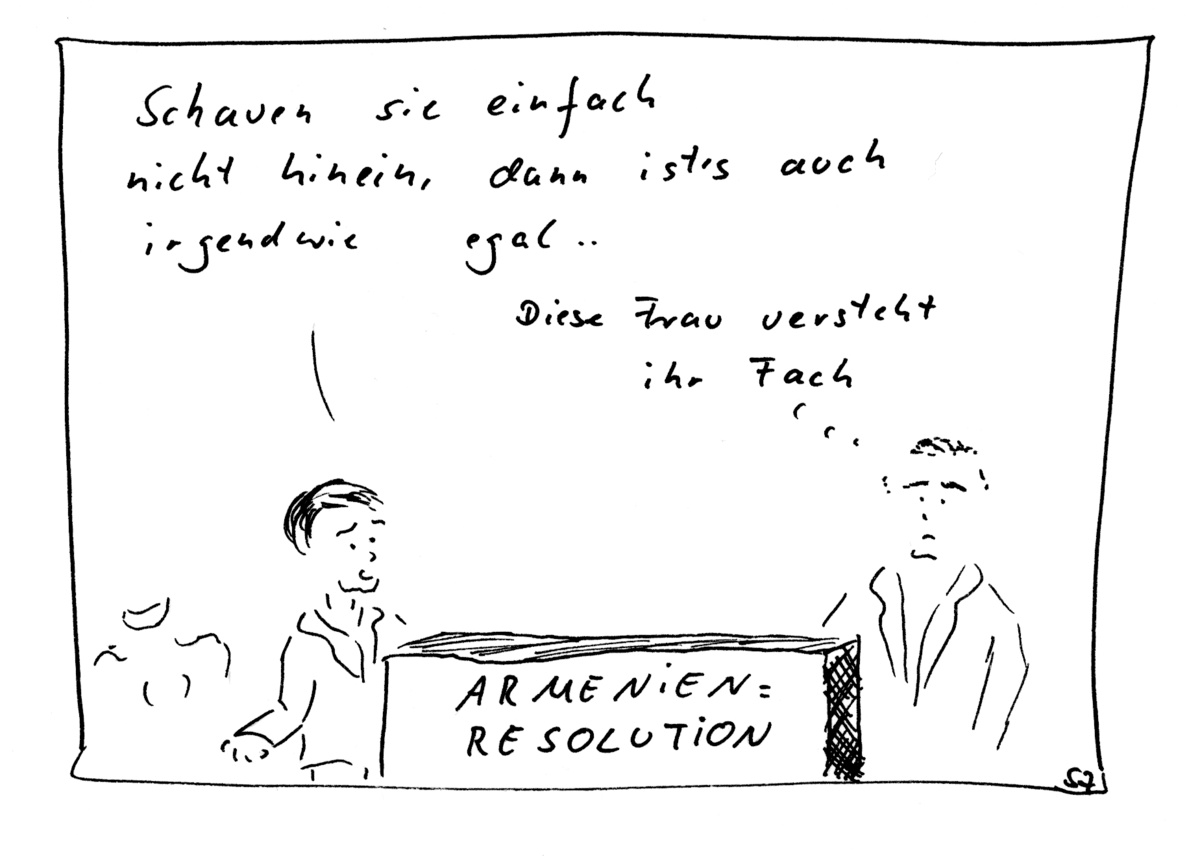 Schauen sie einfach
nicht hinein, dann ist's auch
irgendwie egal..
Diese Frau versteht
ihr Fach
ARMENiEN=
RESOLUTiON